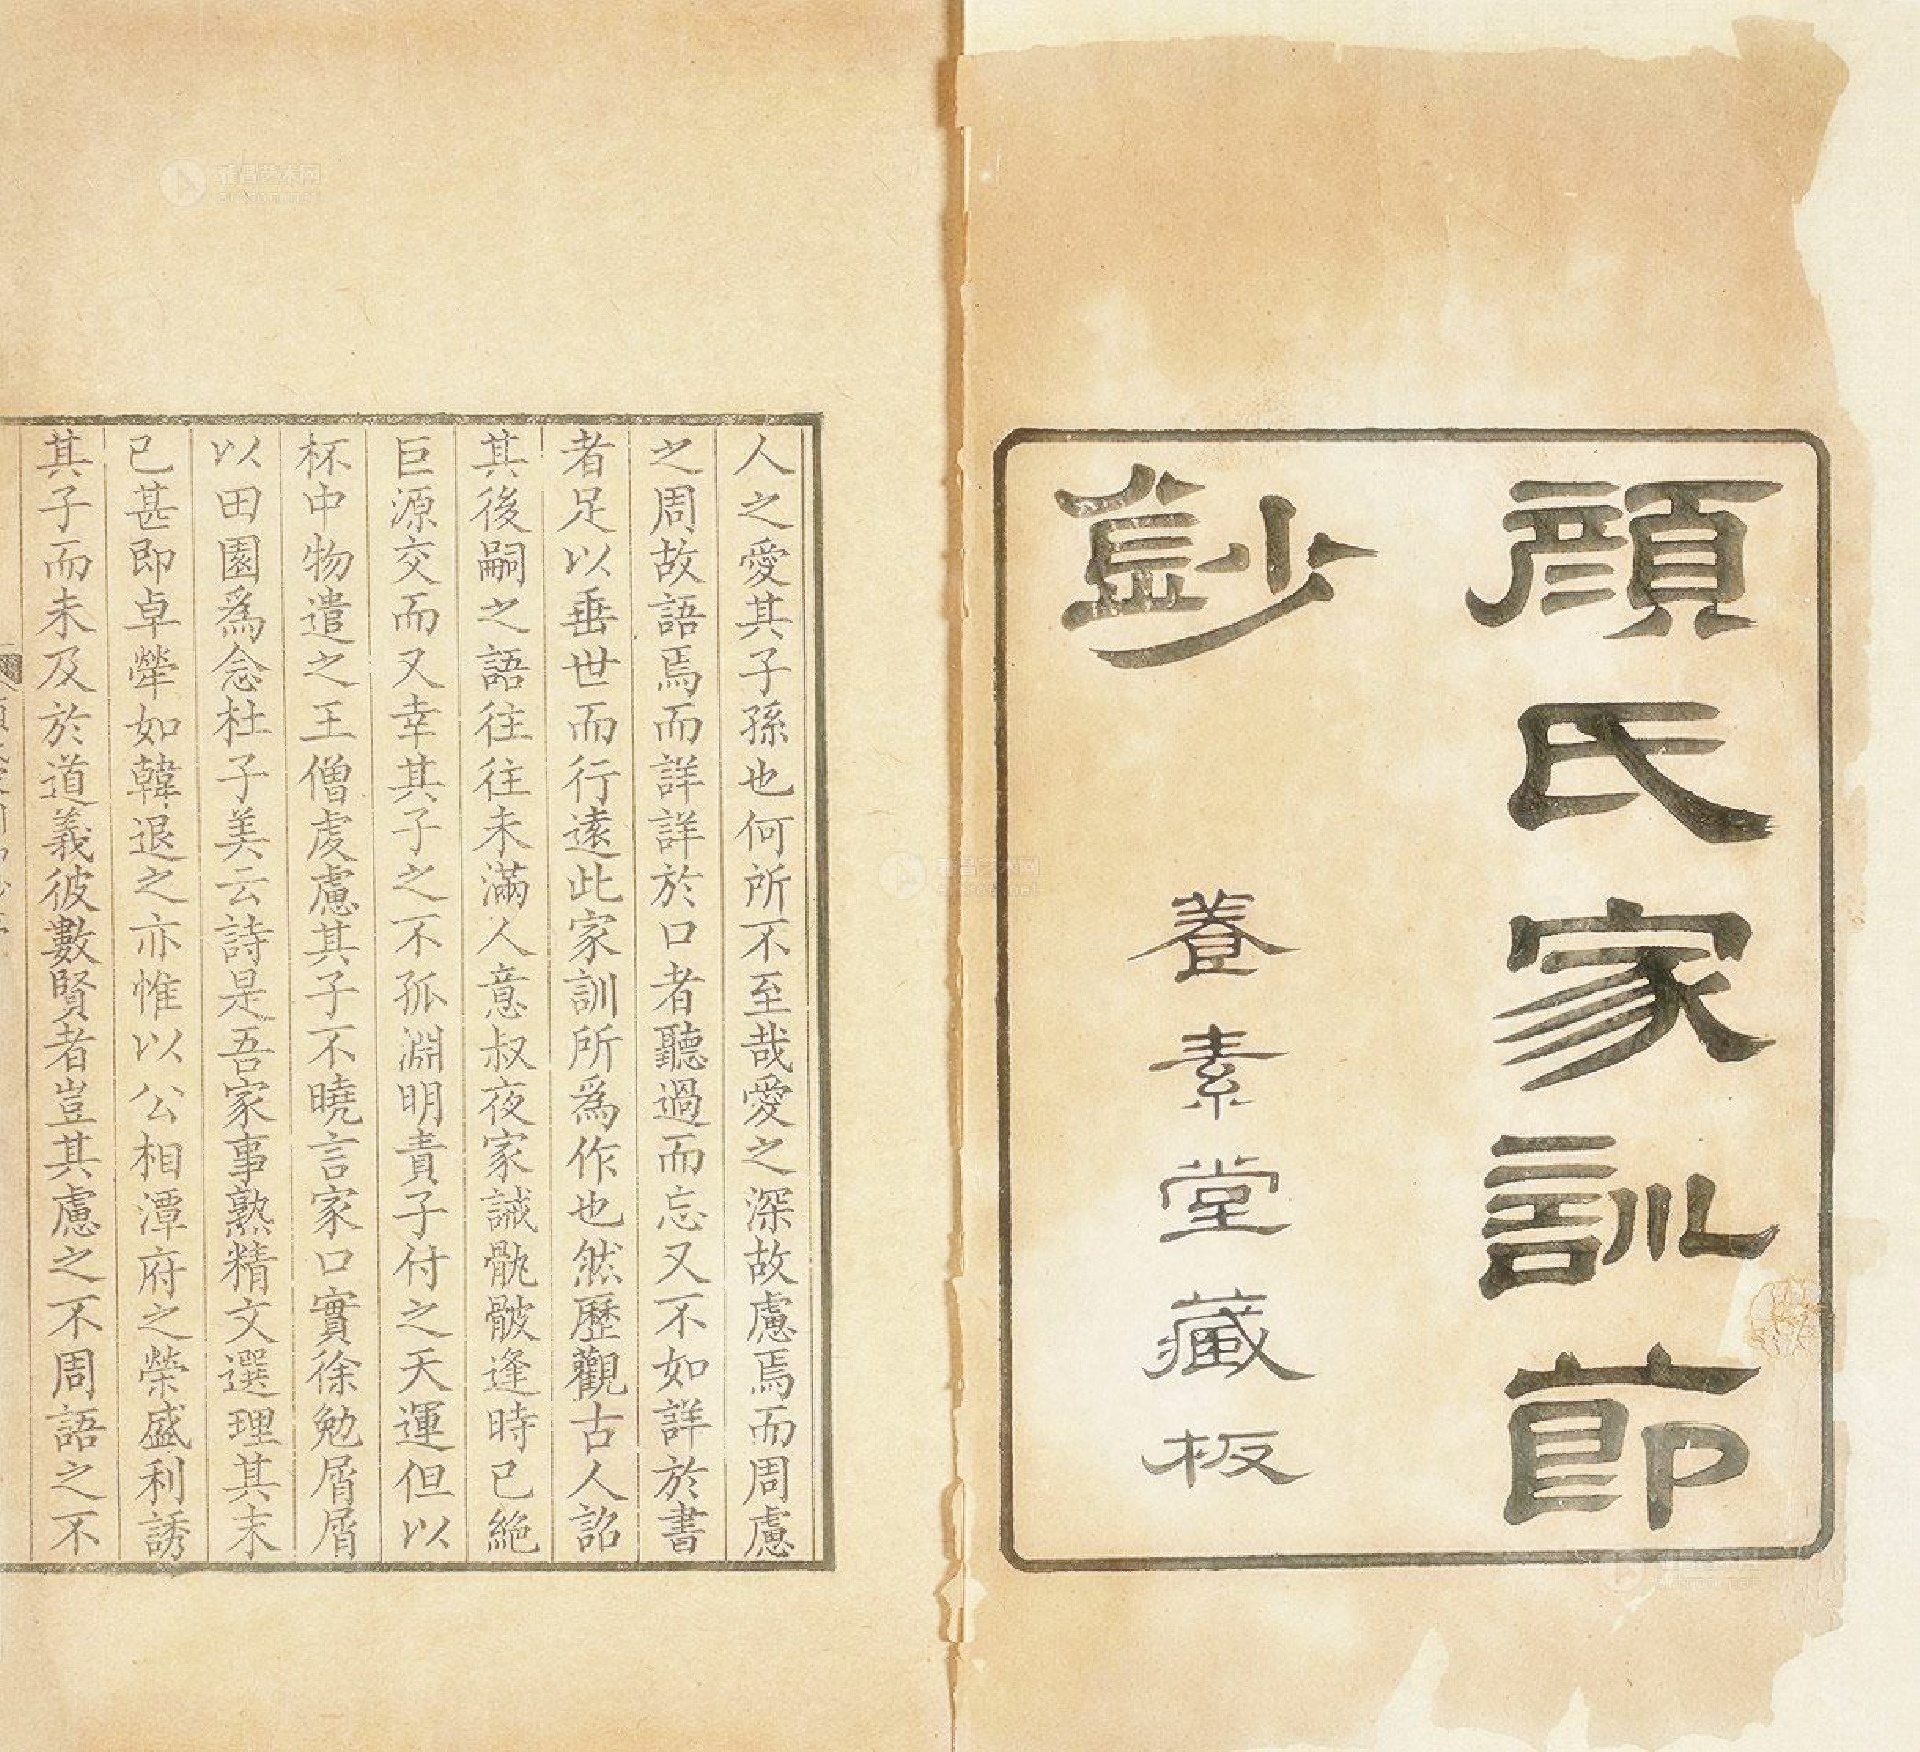 顔氏家訓節
鈔
養素堂藏板
人之愛其子孫也何所不至哉愛之深故慮焉而周慮
之周故語焉而詳詳於口者聽過而忘又不如詳於書
者足以垂世而行遠此家訓所為作也然歷觀古人詔
其後嗣之語往往未滿人意叔夜家誡骩骳逢時已絶
巨源交而又幸其子之不孤淵明責子付之天運但以
杯中物遣之王僧虔慮其子不曉言家口實徐勉屑屑
以田園為念杜子美云詩是吾家事熟精文選理其末
已甚即卓犖如韓退之亦惟以公相潭府之榮盛利誘
其子而未及於道義彼數賢者豈其慮之不周語之不